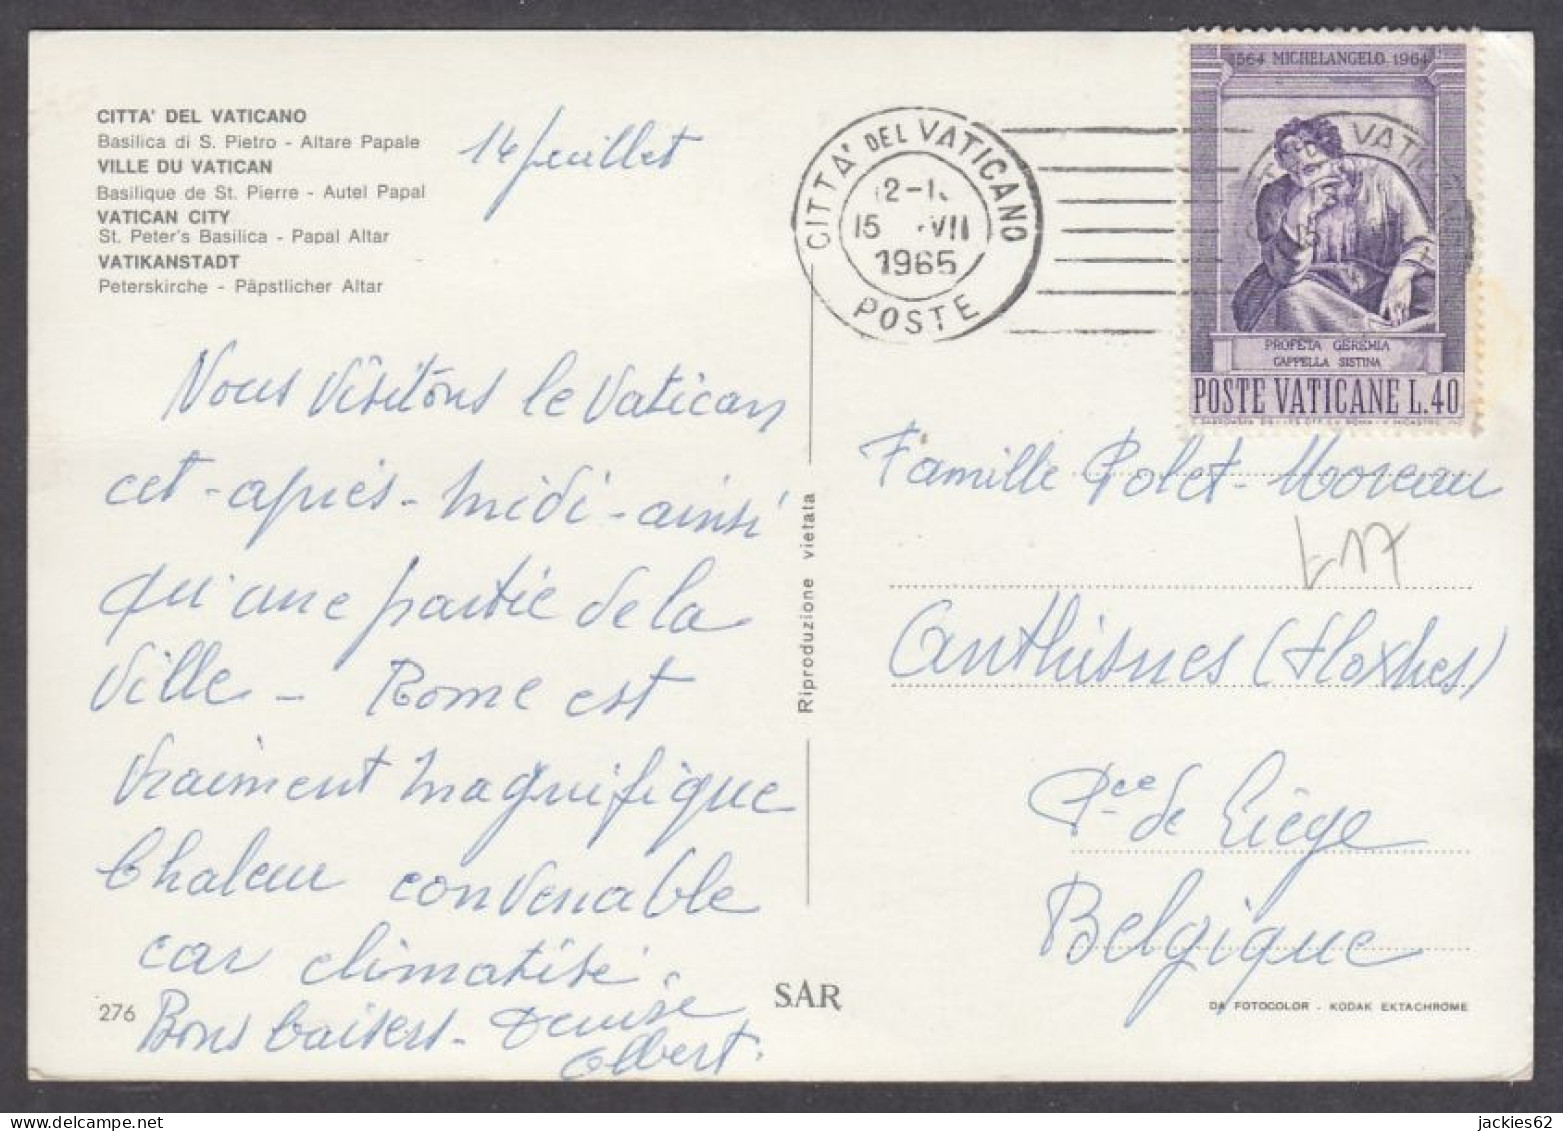 CITTA' DEL VATICANO
Basilica di S. Pietro - Altare Papale
VILLE DU VATICAN
Basilique de St. Pierre - Autel Papal
VATICAN CITY
St. Peter's Basilica - Papal Altar
VATIKANSTADT
Peterskirche - Päpstlicher Altar
14 juillet
Nous visitons le Vatican
cet-après-midi-ainsi
qu'une partie de la
ville - Rome est
vraiment magnifique
Chaleur convenable
car climatisé.
Bons baisers - Denise
Albert.
276
SAR
Riproduzione vietata
CITTA' DEL VATICANO
15 VII
1965
POSTE
1564 MICHELANGELO 1964
PROFETA GEREMIA
CAPPELLA SISTINA
POSTE VATICANE L.40
Famille Polet-Moreau
Anthisnes (Hoxhes)
Pce de Liège
Belgique
DA FOTOCOLOR - KODAK EKTACHROME
delcampe.net
jackies62